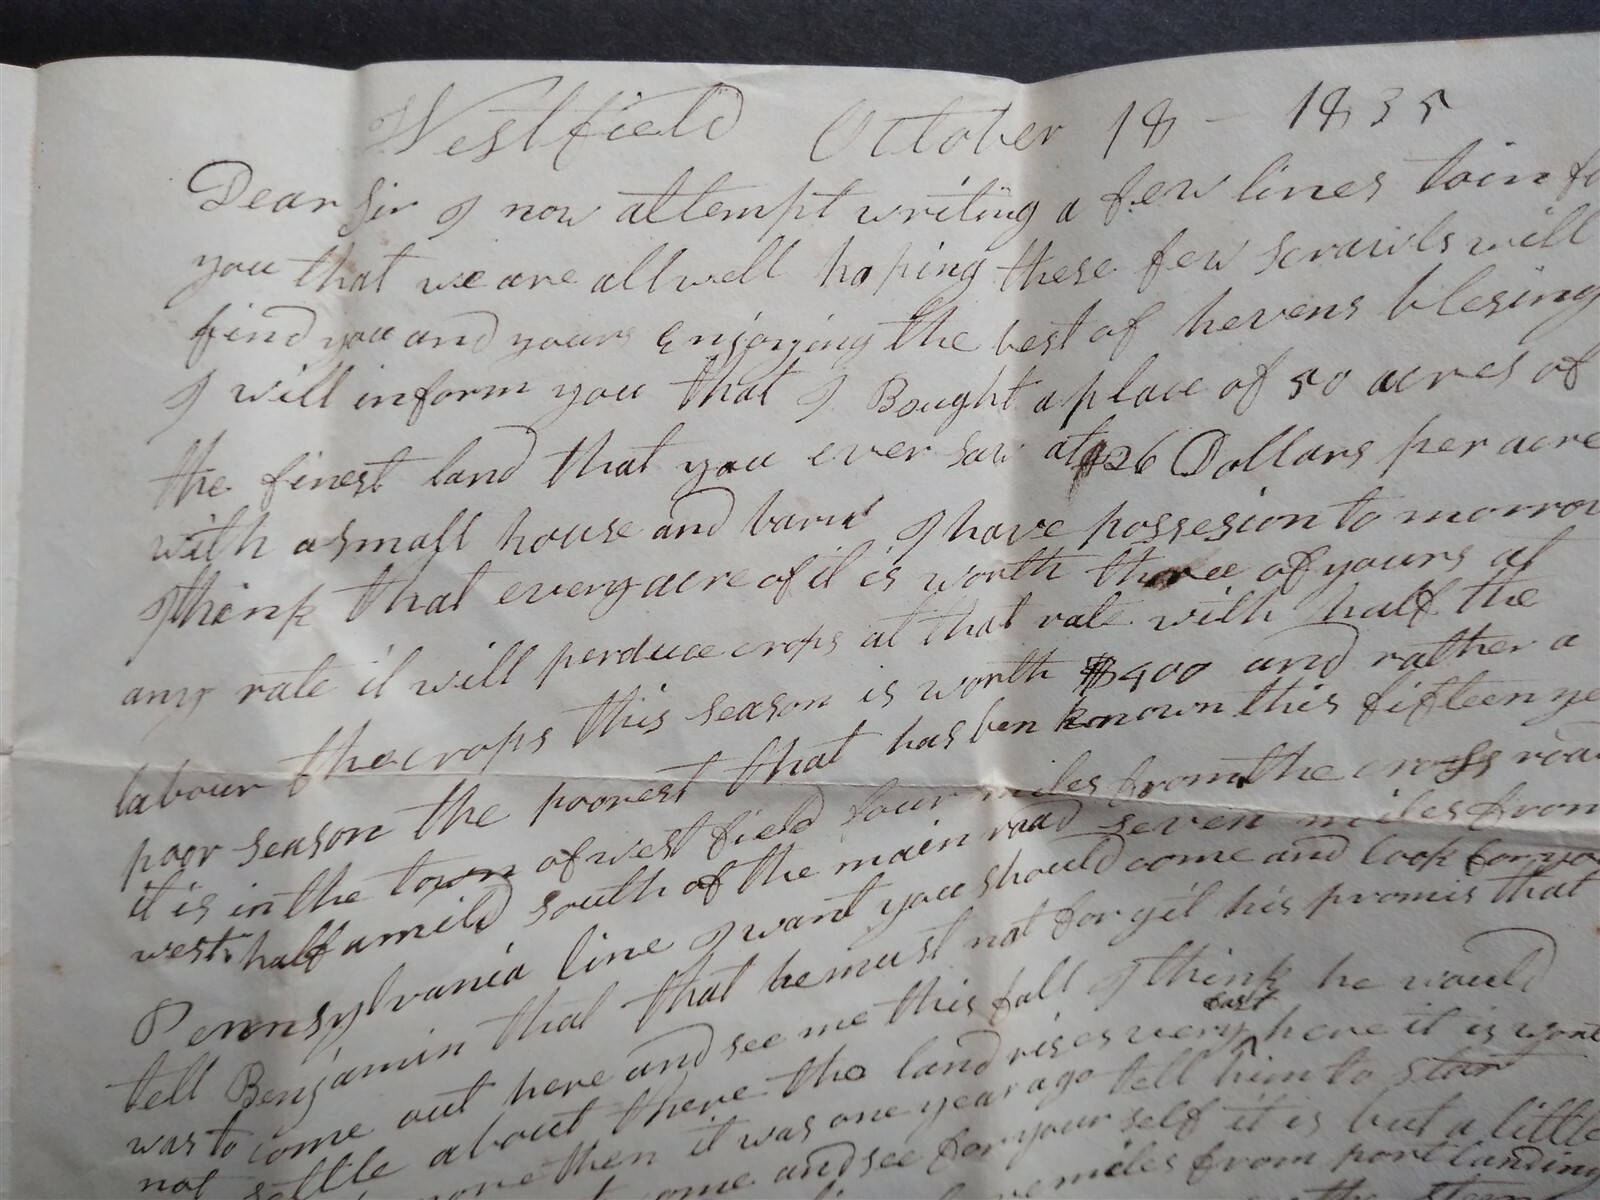 Westfield October 18 - 1835
Dear Sir I now attempt writing a few lines to in fo
you that we are all well hoping these few scrawls will
find you and yours Enjoying the best of hevens blesing
I will inform you that I Bought a place of 50 acres of
the finest land that you ever saw at 26 Dollars per acre
with a small house and barn I have possesion to morrow
I think that every acre of it is worth three of yours at
any rate it will perduce crops at that rate with half the
labour the crops this season is worth $400 and rather a
poor season the poorest that has ben known this fifteen ye
it is in the town of westfield four miles from the cross roa
west half a mild south of the main road seven miles from
Pennsylvania line I want you should come and look for yo
tell Benjamin that that he must not forgit his promis that
was to come out here and see me this fall I think he would
not settle about there the land rises very fast here it is
more then it was one year ago tell him to
come and see for your self it is but a little
miles from port landing